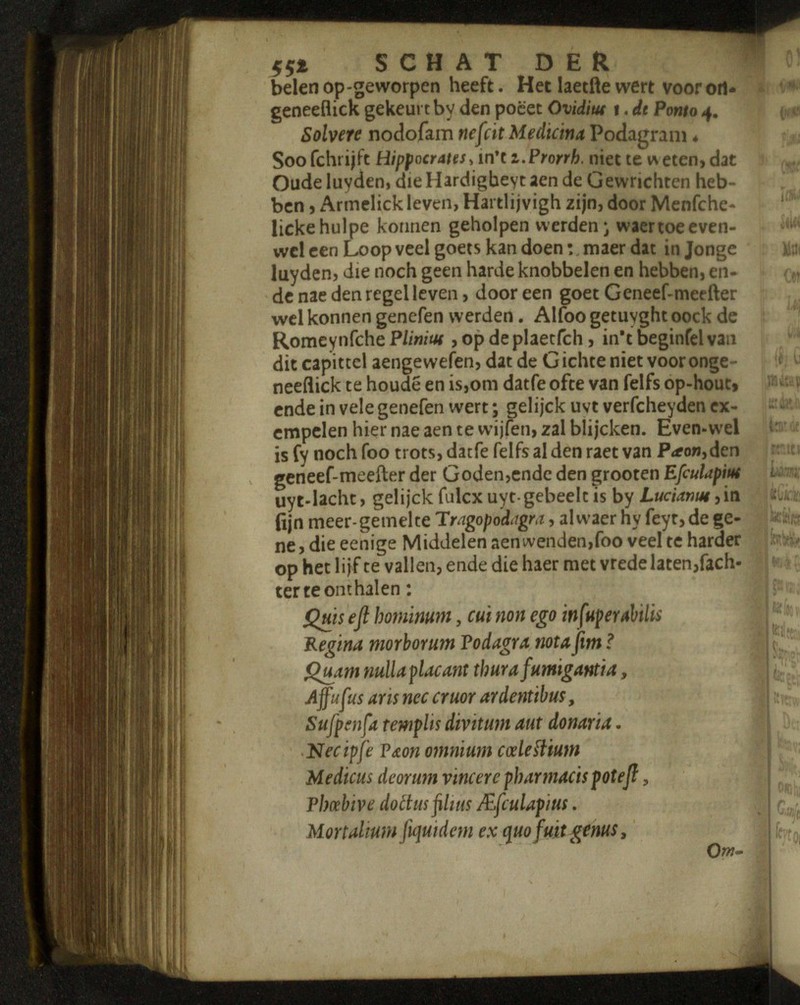 552 SCHAT DER
belen op-geworpen heeft. Het laetſte wert voor on-
geneeſlick gekeurt by den poëet Ovidius 1. de Ponto 4.
Solvere nodoſam neſcit Medicina Podagram.
Soo ſchrijft Hippocrates, in't 2. Prorrh. niet te weten, dat
Oude luyden, die Hardigheyt aen de Gewrichten heb-
ben, Armelick leven, Hartlijvigh zijn, door Menſche-
licke hulpe konnen geholpen werden; waer toe even-
wel een Loop veel goets kan doen: maer dat in Jonge
luyden, die noch geen harde knobbelen en hebben, en-
de nae den regel leven, door een goet Geneeſ-meeſter
wel konnen geneſen werden. Alſoo getuyght oock de
Romeynſche Plinius, op de plaetſch, in't beginſel van
dit capittel aengeweſen, dat de Gichte niet voor onge-
neeſlick te houdē en is, om datſe ofte van ſelfs op-hout,
ende in vele geneſen wert; gelijck uyt verſcheyden ex-
empelen hier nae aen te wijſen, zal blijcken. Even-wel
is ſy noch ſoo trots, datſe ſelfs al den raet van Pæon, den
geneeſ-meeſter der Goden, ende den grooten Eſculapius
uyt-lacht, gelijck ſulcx uyt-gebeelt is by Lucianus, in
ſijn meer-gemelte Tragopodagra, alwaer hy ſeyt, de ge-
ne, die eenige Middelen aenwenden, ſoo veel te harder
op het lijf te vallen, ende die haer met vrede laten, ſach-
ter te onthalen:
Quis eſt hominum, cui non ego inſuperabilis
Regina morborum Podagra nota ſim?
Quam nulla placant thura fumigantia,
Affuſus aris nec cruor ardentibus,
Suſpenſa templis divitum aut donaria.
Nec ipſe Pæon omnium cœleſtium
Medicus deorum vincere pharmacis poteſt,
Phœbive doctus filius Æſculapius.
Mortalium ſiquidem ex quo fuit genus,
Om-